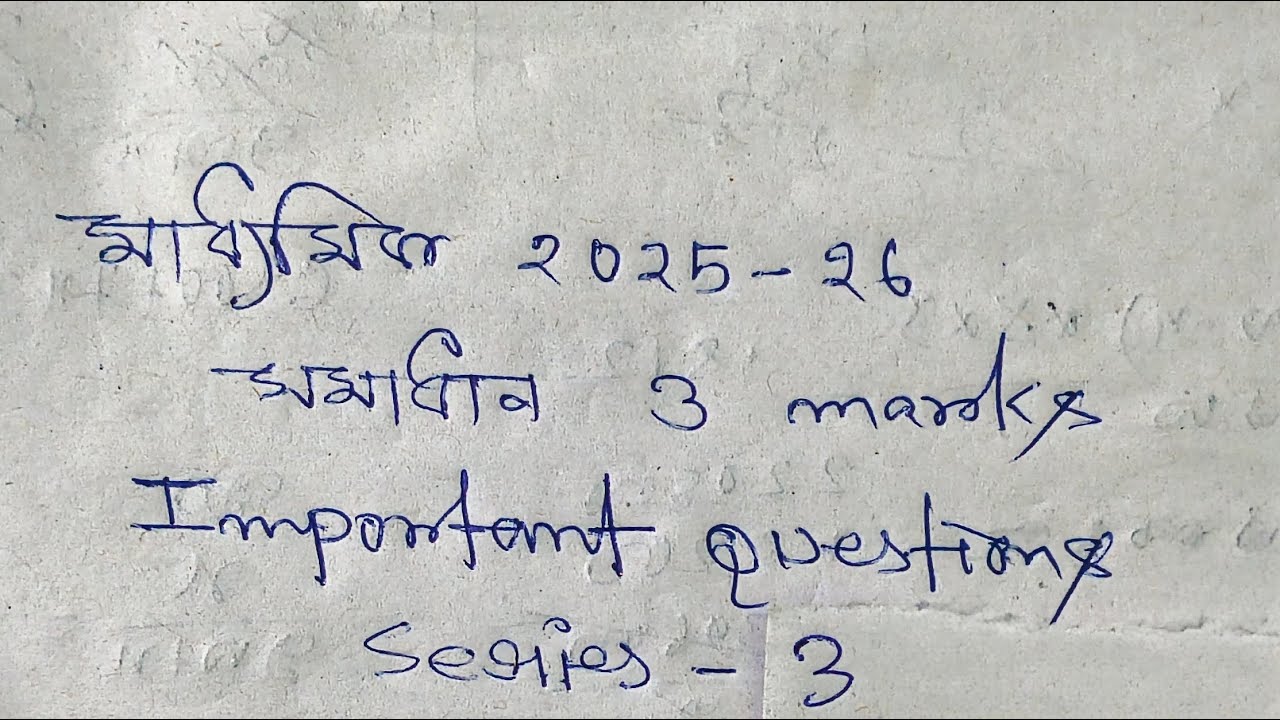 মাধ্যমিক 2025-26
সমাধান 3 marks
Important Questions
Series - 3